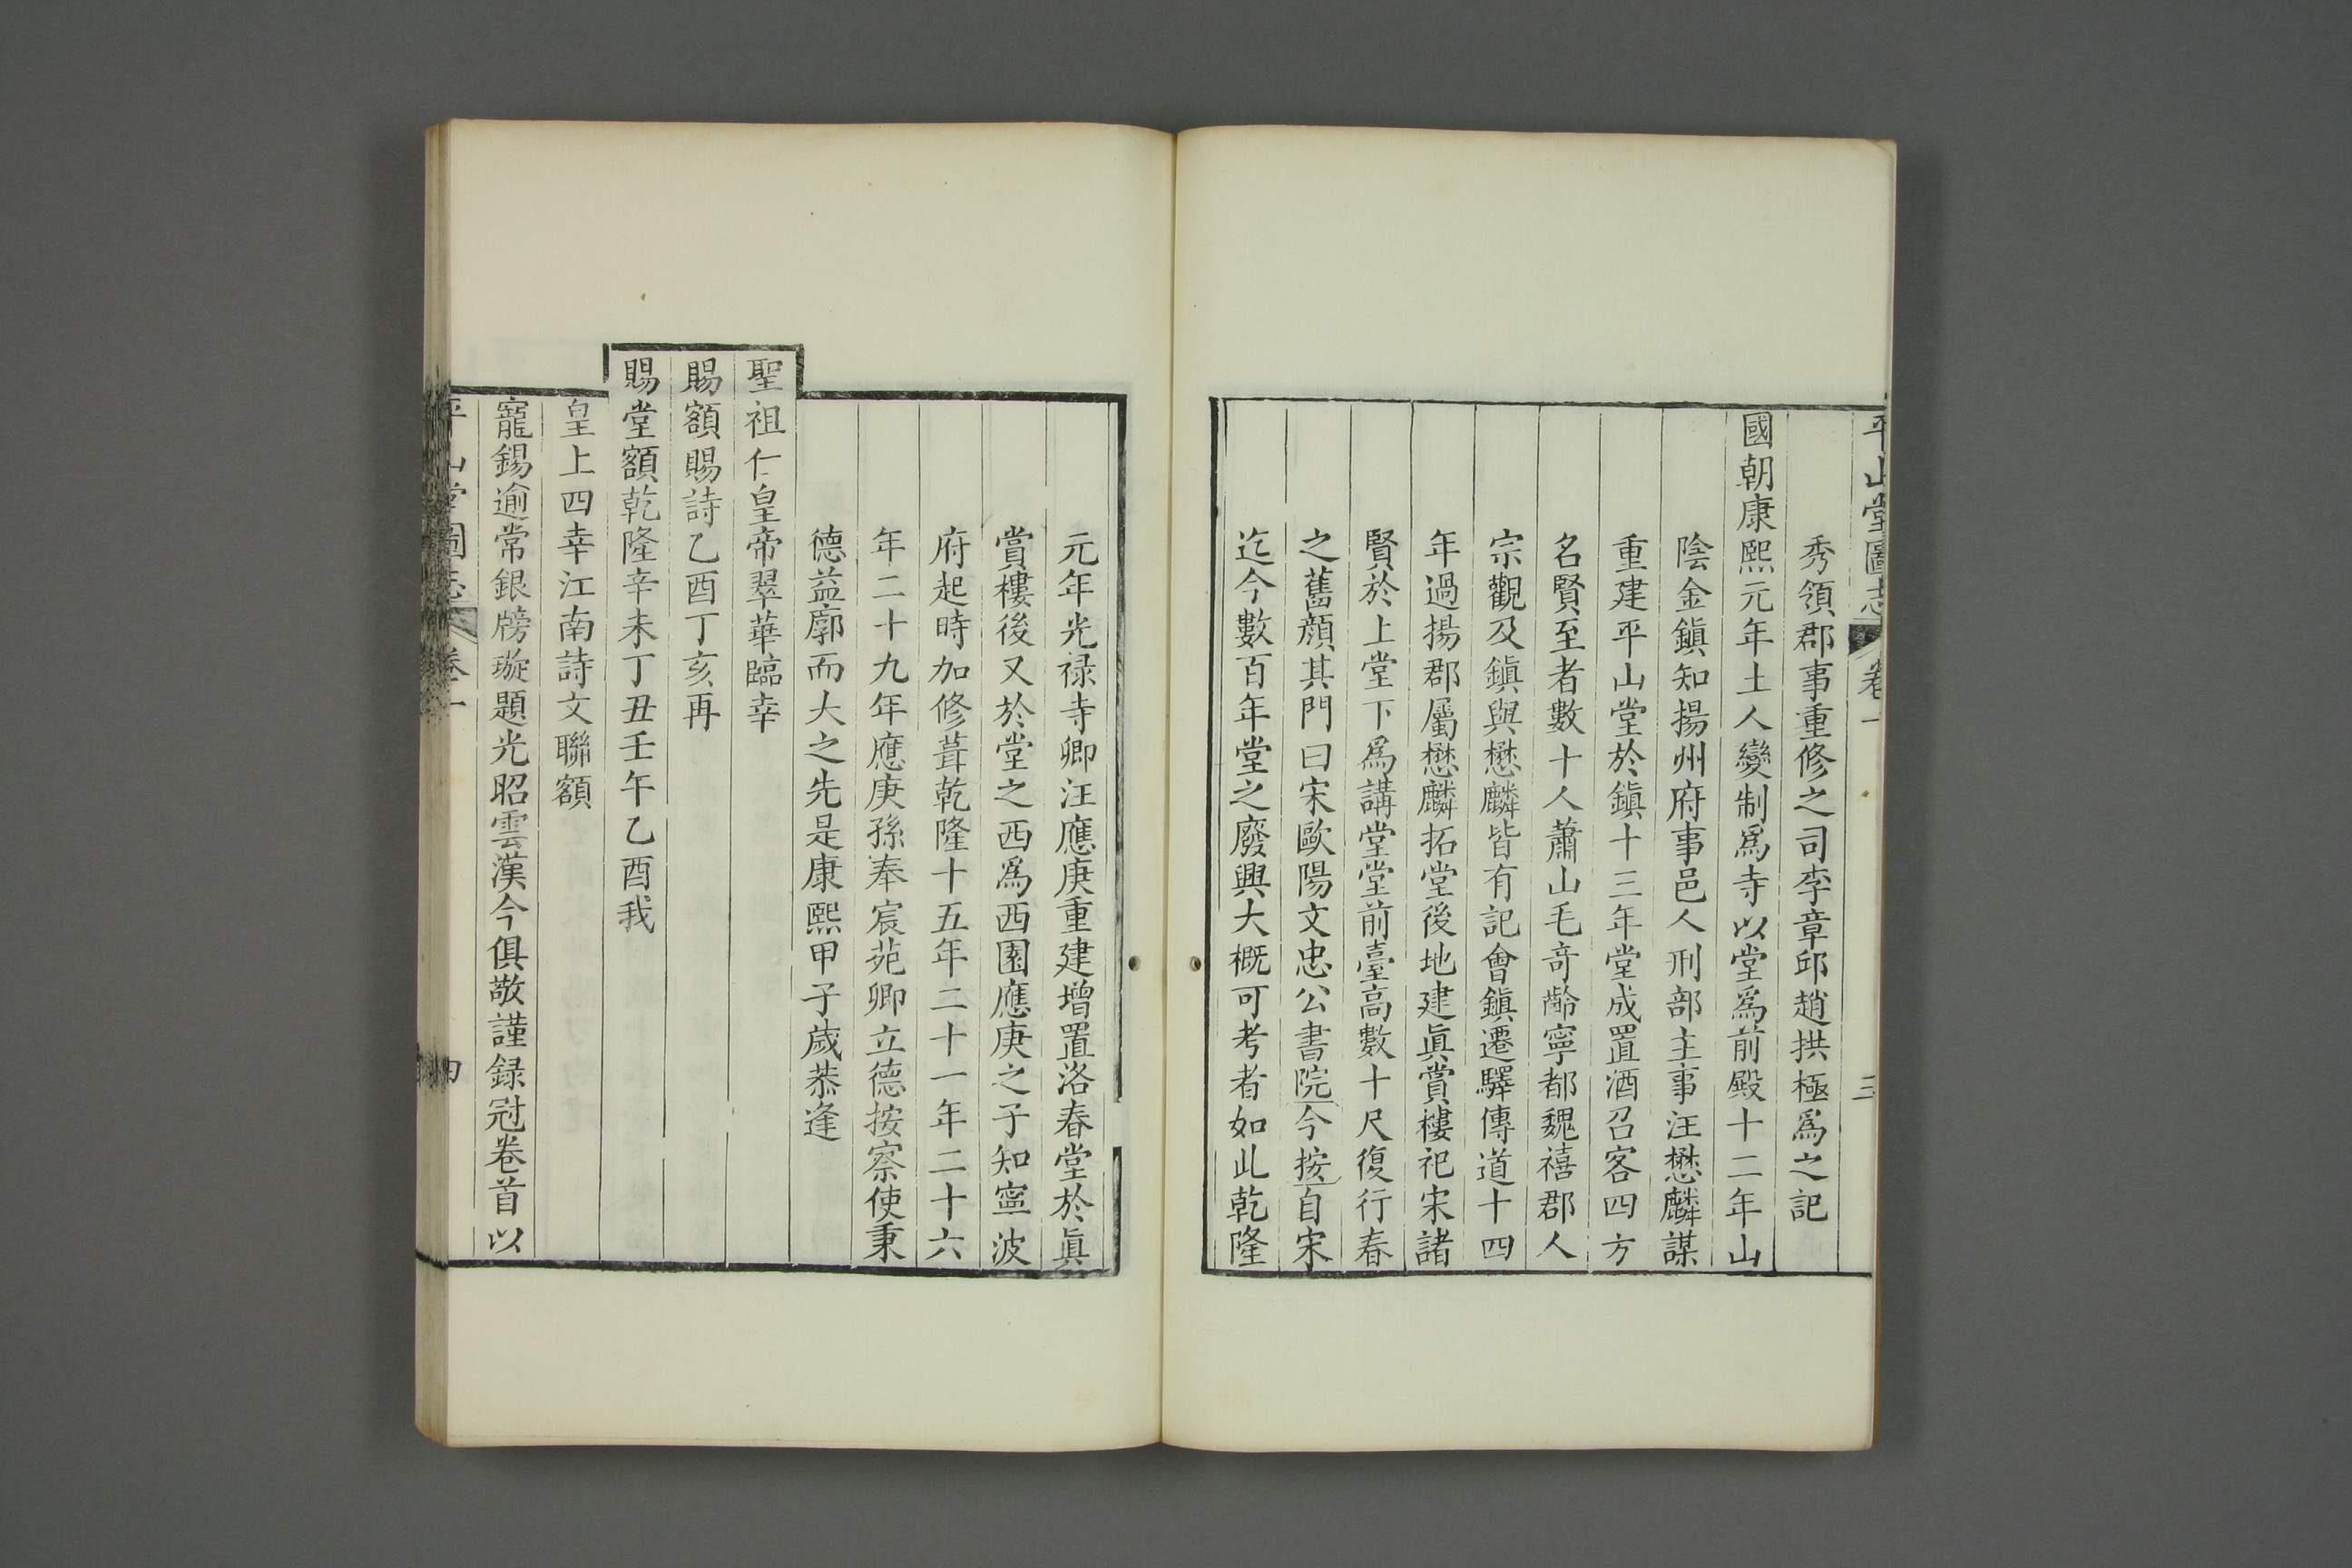 平山堂圖志 卷一 三
秀領郡事重修之司李章邱趙拱極爲之記
國朝康熙元年土人變制爲寺以堂爲前殿十二年山
陰金鎭知揚州府事邑人刑部主事汪懋麟謀
重建平山堂於鎭十三年堂成置酒召客四方
名賢至者數十人蕭山毛竒齡寧都魏禧郡人
宗觀及鎭與懋麟皆有記會鎭遷驛傳道十四
年過揚郡屬懋麟拓堂後地建眞賞樓祀宋諸
賢於上堂下爲講堂堂前臺高數十尺復行春
之舊顔其門曰宋歐陽文忠公書院今按自宋
迄今數百年堂之廢興大概可考者如此乾隆
元年光祿寺卿汪應庚重建增置洛春堂於眞
賞樓後又於堂之西爲西園應庚之子知寧波
府起時加修葺乾隆十五年二十一年二十六
年二十九年應庚孫奉宸苑卿立德按察使秉
德益廓而大之先是康熙甲子歲恭逢
聖祖仁皇帝翠華臨幸
賜額賜詩乙酉丁亥再
賜堂額乾隆辛未丁丑壬午乙酉我
皇上四幸江南詩文聯額
寵錫逾常銀牓璇題光昭雲漢今俱敬謹録冠卷首以
平山堂圖志 卷一 四